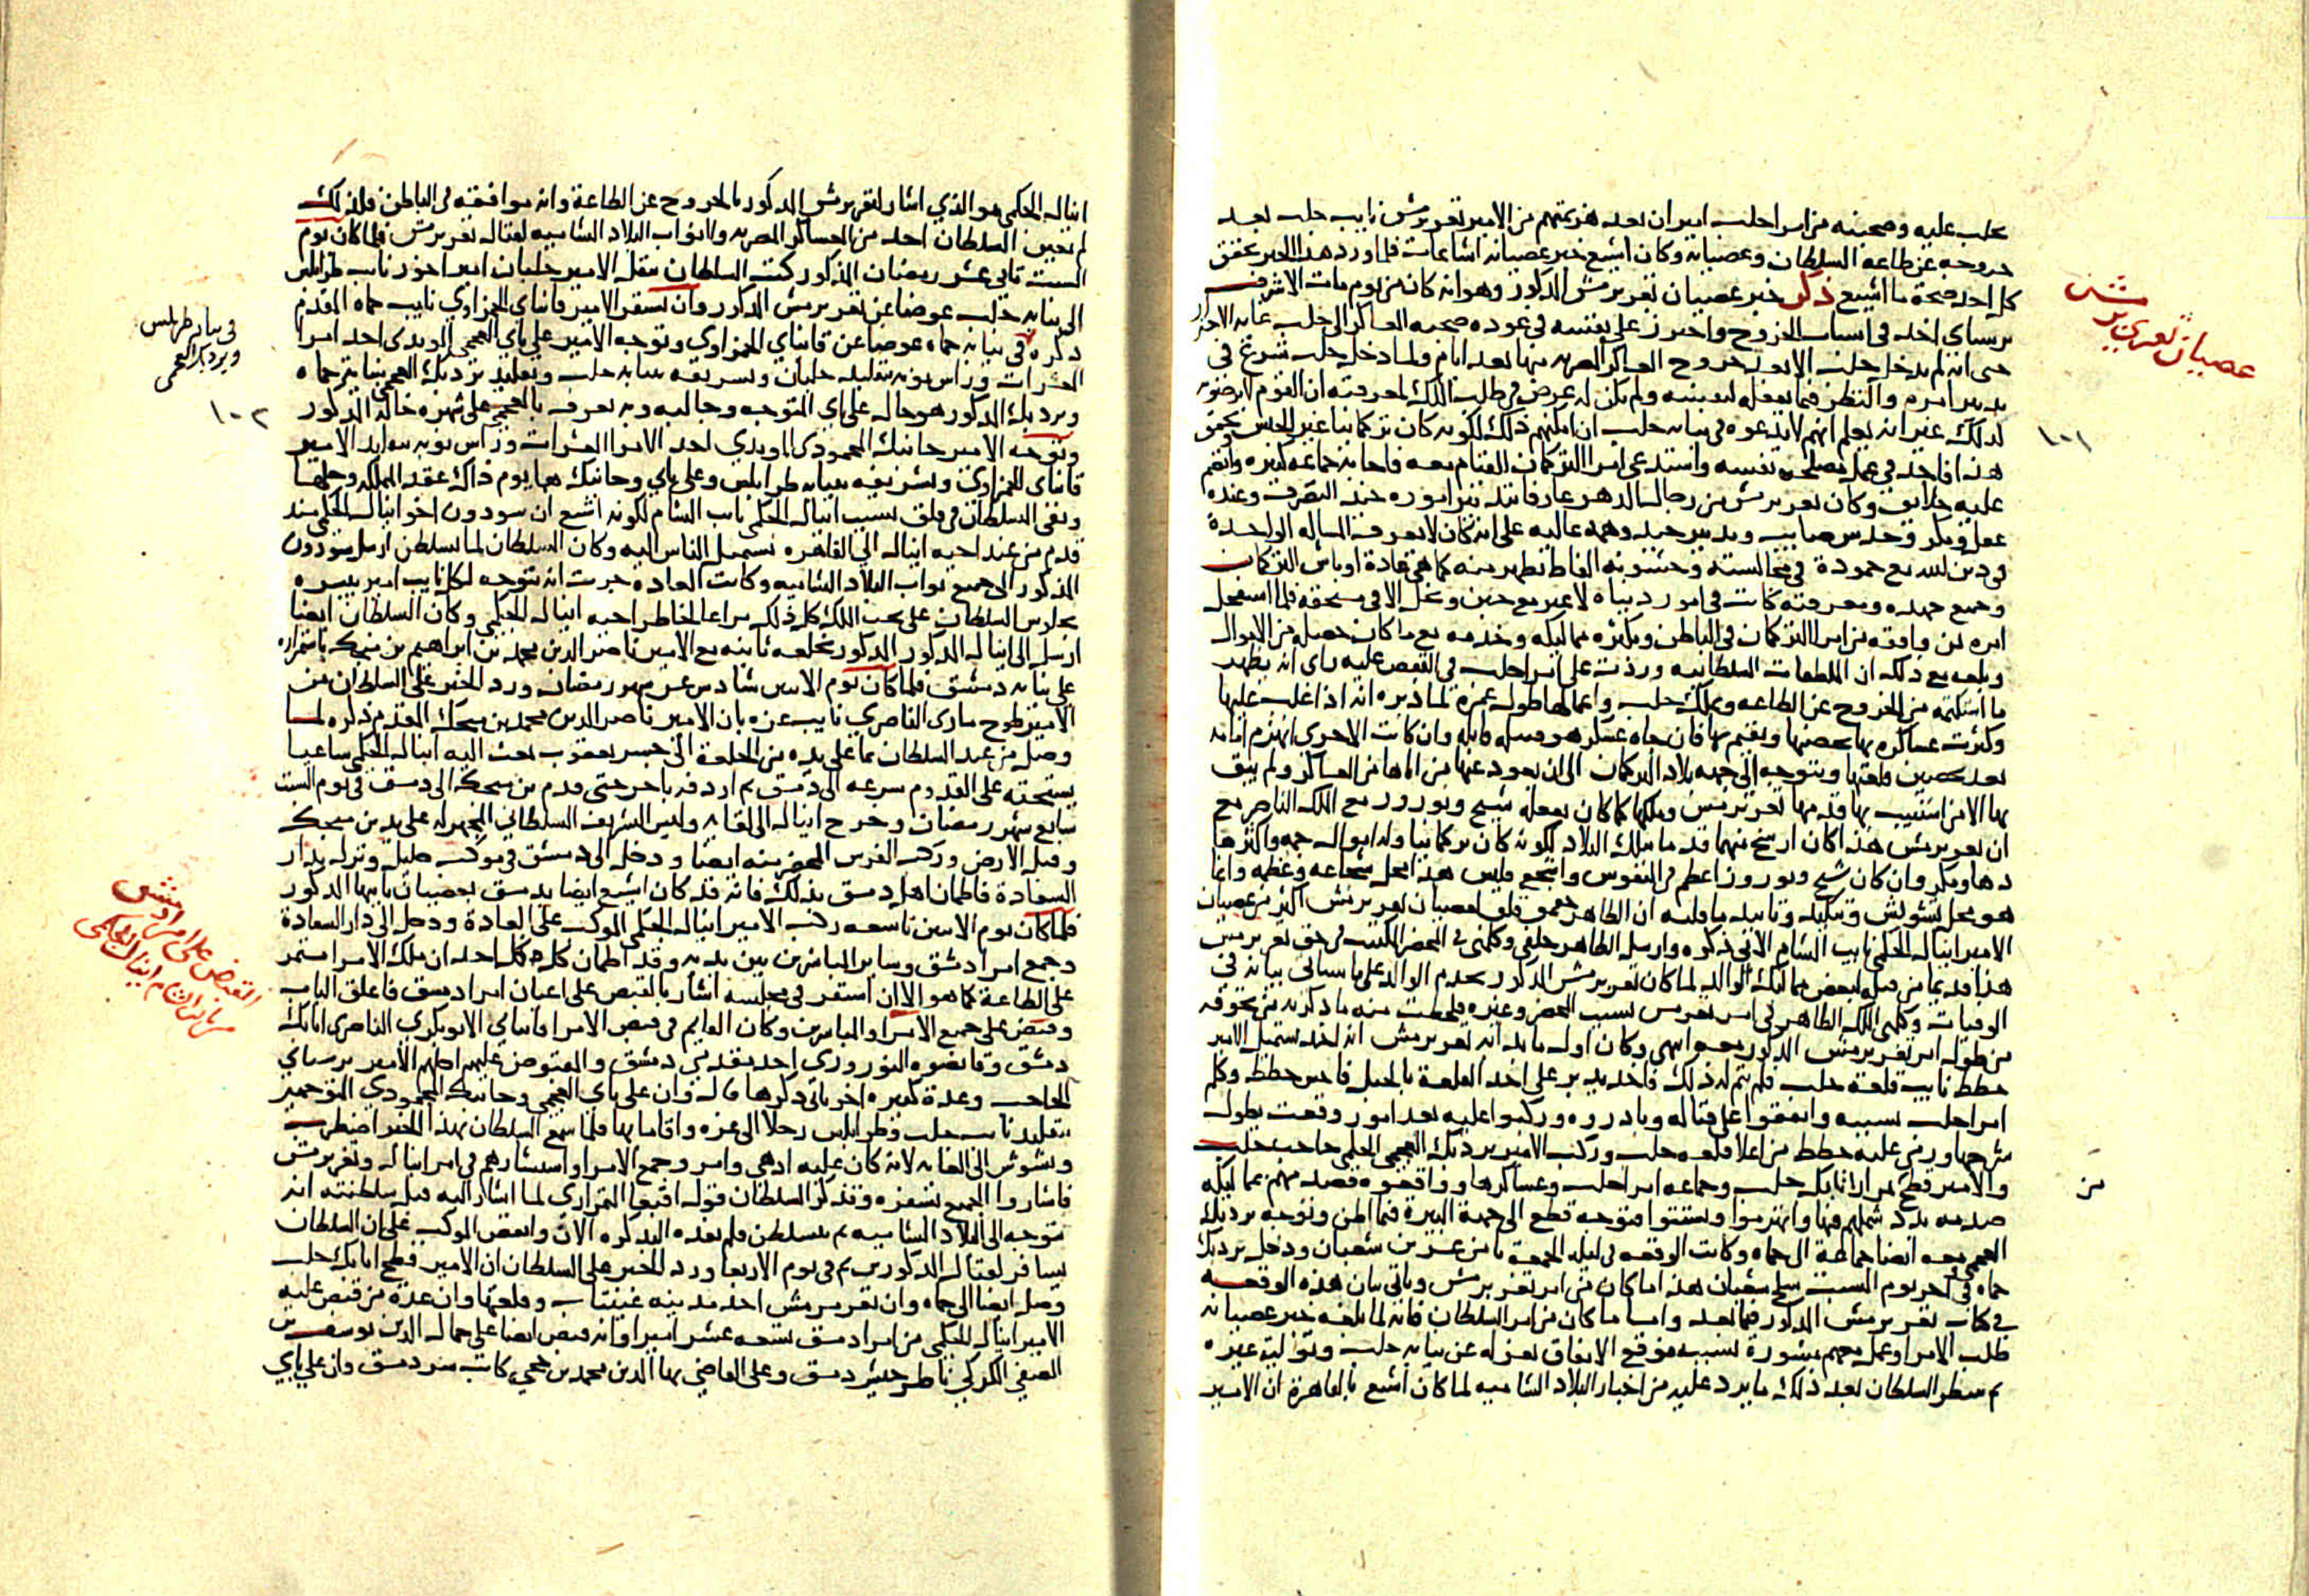 عصيان تغري برمش
حلب عليه وصحبته من امرا حلب اميران بعد هزيمتهم من الامير تغري برمش نايب حلب بعد
خروجه عن طاعه السلطان وعصيانه وكان اشيع خبر عصيانه اشاعات فلما ورد هذا الخبر تحقق
كل احد صحة ما اشيع ذكر خبر عصيان تغري برمش المذكور وهو انه كان من يوم مات الاشرف
برسباي اخذ في اسباب الخروح واحترز على نفسه في عوده صحبه العساكر الى حلب غايه الاحتراز
حتى انه لم يدخل حلب الا بعد خروح العساكر المصريه منها بعد ايام ولما دخل حلب شرع في
تدبير امره والنظر فيما يفعله لنفسه ولم يكن له غرض في طلب الملك لمعرفته ان القوم لا يرضونه
لذلك غير انه يعلم انهم لا يدعوه في نيابه حلب ان امكنهم ذلك لكونه كان تركمانيا غير الجنس فتحقق
١٠١
هذا فاخذ في عمل مصلحه نفسه واستدعى امرا التركمان للقيام معه فاجابه جماعه كبيره وانضم
عليه خلايق وكان تغري برمش من رجال الدهر عارفا بتدبير اموره جيد التصرف وعنده
عقل ومكر وحدس صايب وتدبير جيد وهمه عاليه على انه كان لا يعرف المساله الواحدة
في دين الله مع جمودة في مجالسته وخشونه الفاظ تظهر منه كما هي عادة اوباش التركمان
وجميع جهده ومعرفته كانت في امور دنياه لا غير مع جبن وبخل الا في مستحقه فلما استفحل
امره بمن وافقه من امرا التركمان في الباطن وبكثره مماليكه وخدمه مع ما كان حصله من الاموال
وبلغه مع ذلك ان الملطفات السلطانيه وردت على امرا حلب في القبض عليه راى انه يظهر
ما استكتمه من الخروج عن الطاعه ويملك حلب واعمالها طول عمره لما دبره انه اذا غلب عليها
وكثرت عساكره بها يحصنها ويقيم بها فان جاه عسكر هو قبله قابله وان كانت الاخرى انهزم امامه
بعد تحصين قلعتها ويتوجه الى جهه بلاد التركمان الى ان يعود عنها من اتاها من العساكر ولم يبق
بها الا من استنيب بها قدمها تغري برمش وملكها كما كان يفعله شيخ ونوروز مع الملك الناصر مع
ان تغري برمش هذا كان ارسخ منهما قدما بتلك البلاد لكونه كان تركمانيا وله اموال جمه واكثر
دهاء ومكرا وان كان شيخ ونوروز اعظم في النفوس واشجع فليس هذا محل شجاعه وعظمه وانما
هو محل تشويش وتنكيد وتاييد ما قلته ان الظاهر جقمق قلق لعصيان تغري برمش اكثر من عصيان
الامير اينال الجكمي نايب الشام الاتي ذكره وارسل الظاهر خلفي وكلمني في المحضر المكتتب في حق تغري برمش
هذا قديما من قبل بعض مماليك الوالد لما كان تغري برمش المذكور بخدم الوالد على ما سياتي بيانه في
الوفيات وكلمني الملك الظاهر في امر تغري برمش بسبب المحضر وغيره فلحظت منه ما ذكرته من تخوفه
من طول امر تغري برمش المذكور معه انتهى وكان اول ما بدا به تغري برمش انه اخذ يستميل الامير
حطط نايب قلعة حلب فلم يتم له ذلك فاخذ يدبر على اخذ القلعة بالحيل فاحس حطط وكلم
امرا حلب بسببه واتفقوا على قتاله وبادروه وركبوا عليه بعد امور وقعت يطول
شرحها ورمى عليه حطط من اعلا قلعه حلب وركب الامير بردبك العجمي الجكمي حاجب حجاب حلب
والامير قطج تمراز اتابك حلب وجماعه امرا حلب وعساكرها وواقعوه فصدمهم بمماليكه
من
صدمه بدد شملهم فيها وانهزموا وتشتتوا فتوجه قطج الى جهة البيرة فيما اظن وتوجه بردبك
العجمي معه ايضا جماعة الى حماه وكانت الوقعه في ليله الجمعه ثامن عشرين شعبان ودخل بردبك
حماه في اخر يوم السبت سلخ شعبان هذا ما كان من امر تغري برمش وياتي بيان هذه الوقعه
في كتاب تغري برمش المذكور فيما بعد واما ما كان من امر السلطان فانه لما بلغه خبر عصيانه
طلب الامرا وعمل معهم مشورة بسببه فوقع الاتفاق بعزله عن نيابه حلب وتوليه غيره
ثم ينظر السلطان بعد ذلك ما يرد عليه من اخبار البلاد الشاميه لما كان اشيع بالقاهرة ان الامير
اينال الجكمي هو الذي اشار لتغري برمش المذكور بالخروج عن الطاعة وانه موافقه في الباطن فلذلك
لم يعين السلطان احد من العساكر المصريه ولا نواب البلاد الشاميه لقتال تغري برمش فلما كان يوم
السبت ثاني عشر رمضان المذكور كتب السلطان بنقل الامير جلبان امير اخور نايب طرابلس
الى نيابه حلب عوضا عن تغري برمش المذكور وان يستقر الامير قانباي الحمزاوي نايب حماه المقدم
في نيابه طرابلس
وبردبك العجمي
ذكره في نيابه حماه عوضا عن قانباي الحمزاوي وتوجه الامير علي باي العجمي المويدي احد امرا
العشرات وراس نوبه بتقليد جلبان وتشريفه بنيابه حلب وتقليد بردبك العجمي بنيابة حماه
وبردبك المذكور هو خال علي باي المتوجه وجالبه وبه يعرف بالعجمي على شهره خاله المذكور
١٠٢
وتوجه الامير جانبك المحمودي المويدي احد الامرا العشرات وراس نوبه بتقليد الامير
قانباي الحمزاوي وتشريفه بنيابه طرابلس وعلي باي وجانبك هما يوم ذاك عقد المملكه وحلها
وبقى السلطان في قلق بسبب اينال الجكمي نايب الشام لكونه اشيع ان سودون اخو اينال الجكمي منذ
قدم من عند اخيه اينال الى القاهره يستميل الناس اليه وكان السلطان لما تسلطن ارسل سودون
المذكور الى جميع نواب البلاد الشاميه وكانت العاده جرت انه يتوجه لكل نايب امير يبشره
بجلوس السلطان على تخت الملك كل ذلك مراعا لخاطر اخيه اينال الجكمي وكان السلطان ايضا
ارسل الى اينال المذكور المذكور بخلعه ثانيه مع الامير ناصر الدين محمد بن ابراهيم بن منجك باستمراره
على نيابه دمشق فلما كان يوم الاثنين سادس عشر شهر رمضان ورد الخبر على السلطان من
الامير طوخ مازي الناصري نايب غزه بان الامير ناصر الدين محمد بن منجك المقدم ذكره لما
وصل من عند السلطان بما على يده من الخلعة الى جسر يعقوب بعث اليه اينال الجكمي ساعيا
يستحثه على القدوم بسرعه الى دمشق ثم اردفه باخر حتى قدم بن منجك الى دمشق في يوم السبت
سابع شهر رمضان وخرج اينال الى لقايه ولبس التشريف السلطاني المجهز له على يد بن منجك
وقبل الارض وركب الفرس المجهز معه ايضا ودخل الى دمشق في موكب جليل ونزل بدار
السعادة فاطمان اهل دمشق بذلك فانه قد كان اشيع ايضا بدمشق بعصيان نايبها المذكور
فلما كان يوم الاثنين تاسعه ركب الامير اينال الجكمي الموكب على العادة ودخل الى دار السعادة
القبض على امرا دمشق
من نايب الشام اينال الجكمي
وجمع امرا دمشق وساير المباشرين بين يديه وقد اطمان كل احد ان ملك الامرا مستمر
على الطاعة كما هو الا ان استقر في مجلسه اشار بالقبض على اعيان امرا دمشق فاغلق الباب
وقبض على جميع الامرا والمباشرين وكان القايم في قبض الامرا قانباي الابوبكري الناصري اتابك
دمشق وقانصوه النوروزي احد مقدمي دمشق والمقبوض عليهم اجلهم الامير برسباي
الحاجب وعدة كبيره اخر ياتي ذكرها قال وان علي باي العجمي وجانبك المحمودي المتوجهين
بتقليد نايب حلب وطرابلس رحلا الى غزه واقاما بها فلما سمع السلطان بهذا الخبر اضطرب
وتشوش الى الغايه لانه كان عليه ادهى وامر وجمع الامرا واستشارهم في امر اينال وتغري برمش
فاشاروا الجميع بسفره وتذكر السلطان قوله اقبغا التمرازي لما اشار اليه قبل سلطنته انه
يتوجه الى البلاد الشاميه ثم يتسلطن فلم يفده التذكره الان وانفض الموكب على ان السلطان
يسافر لقتال المذكورين ثم في يوم الاربعا ورد الخبر على السلطان ان الامير قطج اتابك حلب
وصل ايضا الى حماه وان تغري برمش اخذ مدينه عينتاب وقلعتها وان عدة من قبض عليه
الامير اينال الجكمي من امرا دمشق تسعه عشر اميرا وانه قبض ايضا على جمال الدين يوسف بن
الصفي الكركي ناظر جيش دمشق وعلى القاضي بها الدين محمد بن حجي كاتب سر دمشق وان علي باي